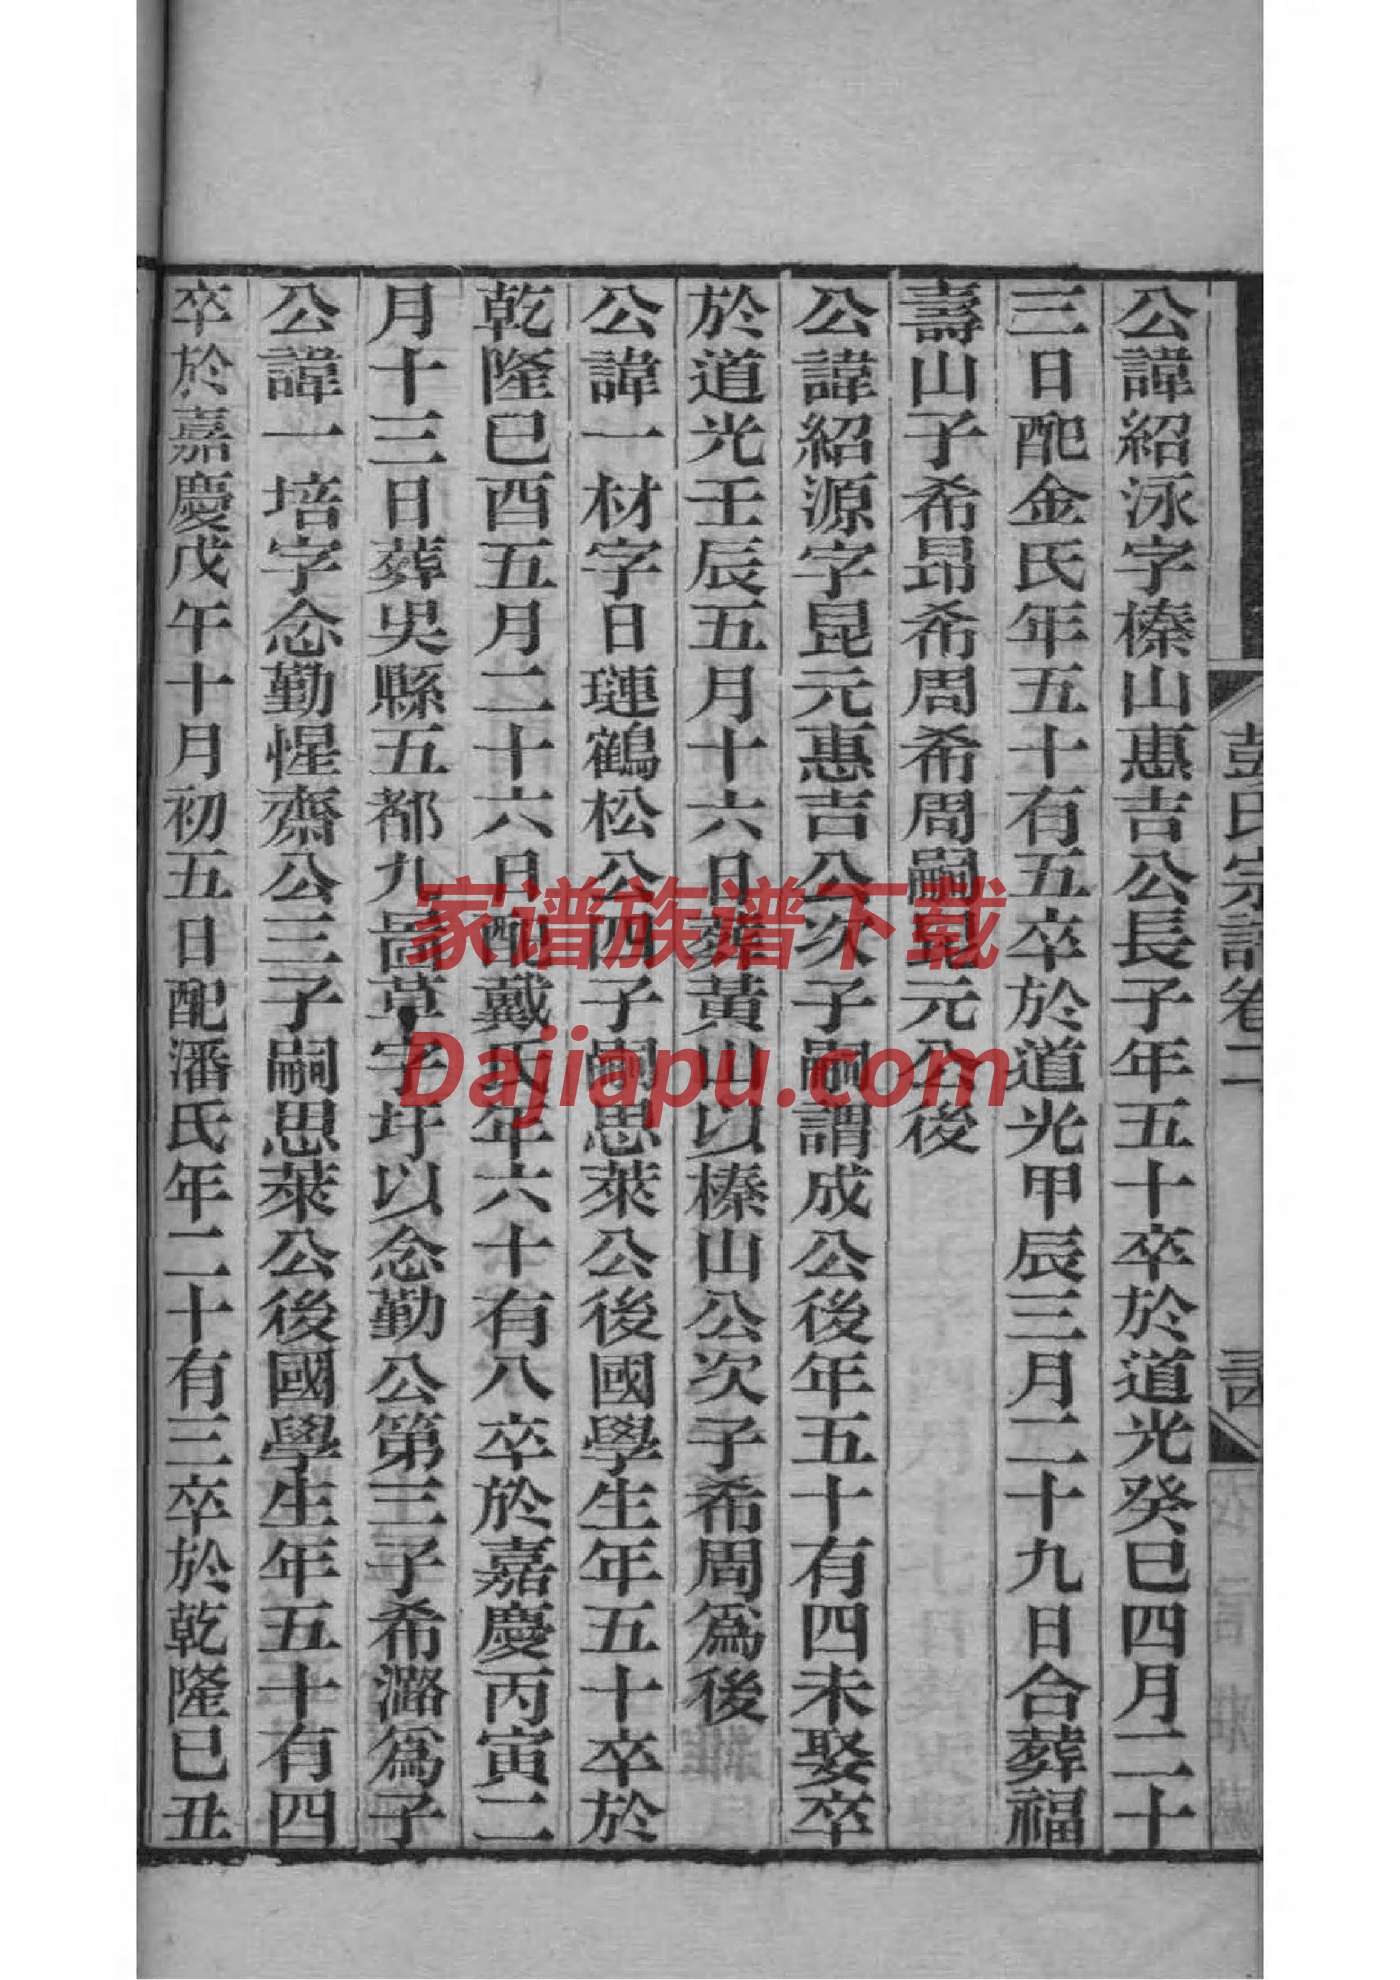 公諱紹泳字榛山惠吉公長子年五十卒於道光癸巳四月二十
三日配金氏年五十有五卒於道光甲辰三月二十九日合葬福
壽山子希昂希周希周嗣昆元公後
公諱紹源字昆元惠吉公次子嗣謂成公後年五十有四未娶卒
於道光壬辰五月十六日葬黃山以榛山公次子希周爲後
公諱一材字日璉鶴松公四子嗣思萊公後國學生年五十卒於
乾隆己酉五月二十六日配戴氏年六十有八卒於嘉慶丙寅二
月十三日葬吳縣五都九啚草字圩以念勤公第三子希潞爲子
公諱一培字念勤惺齋公三子嗣思萊公後國學生年五十有四
卒於嘉慶戊午十月初五日配潘氏年二十有三卒於乾隆己丑
彭氏宗譜卷二
家谱族谱下载
Dajiapu.com